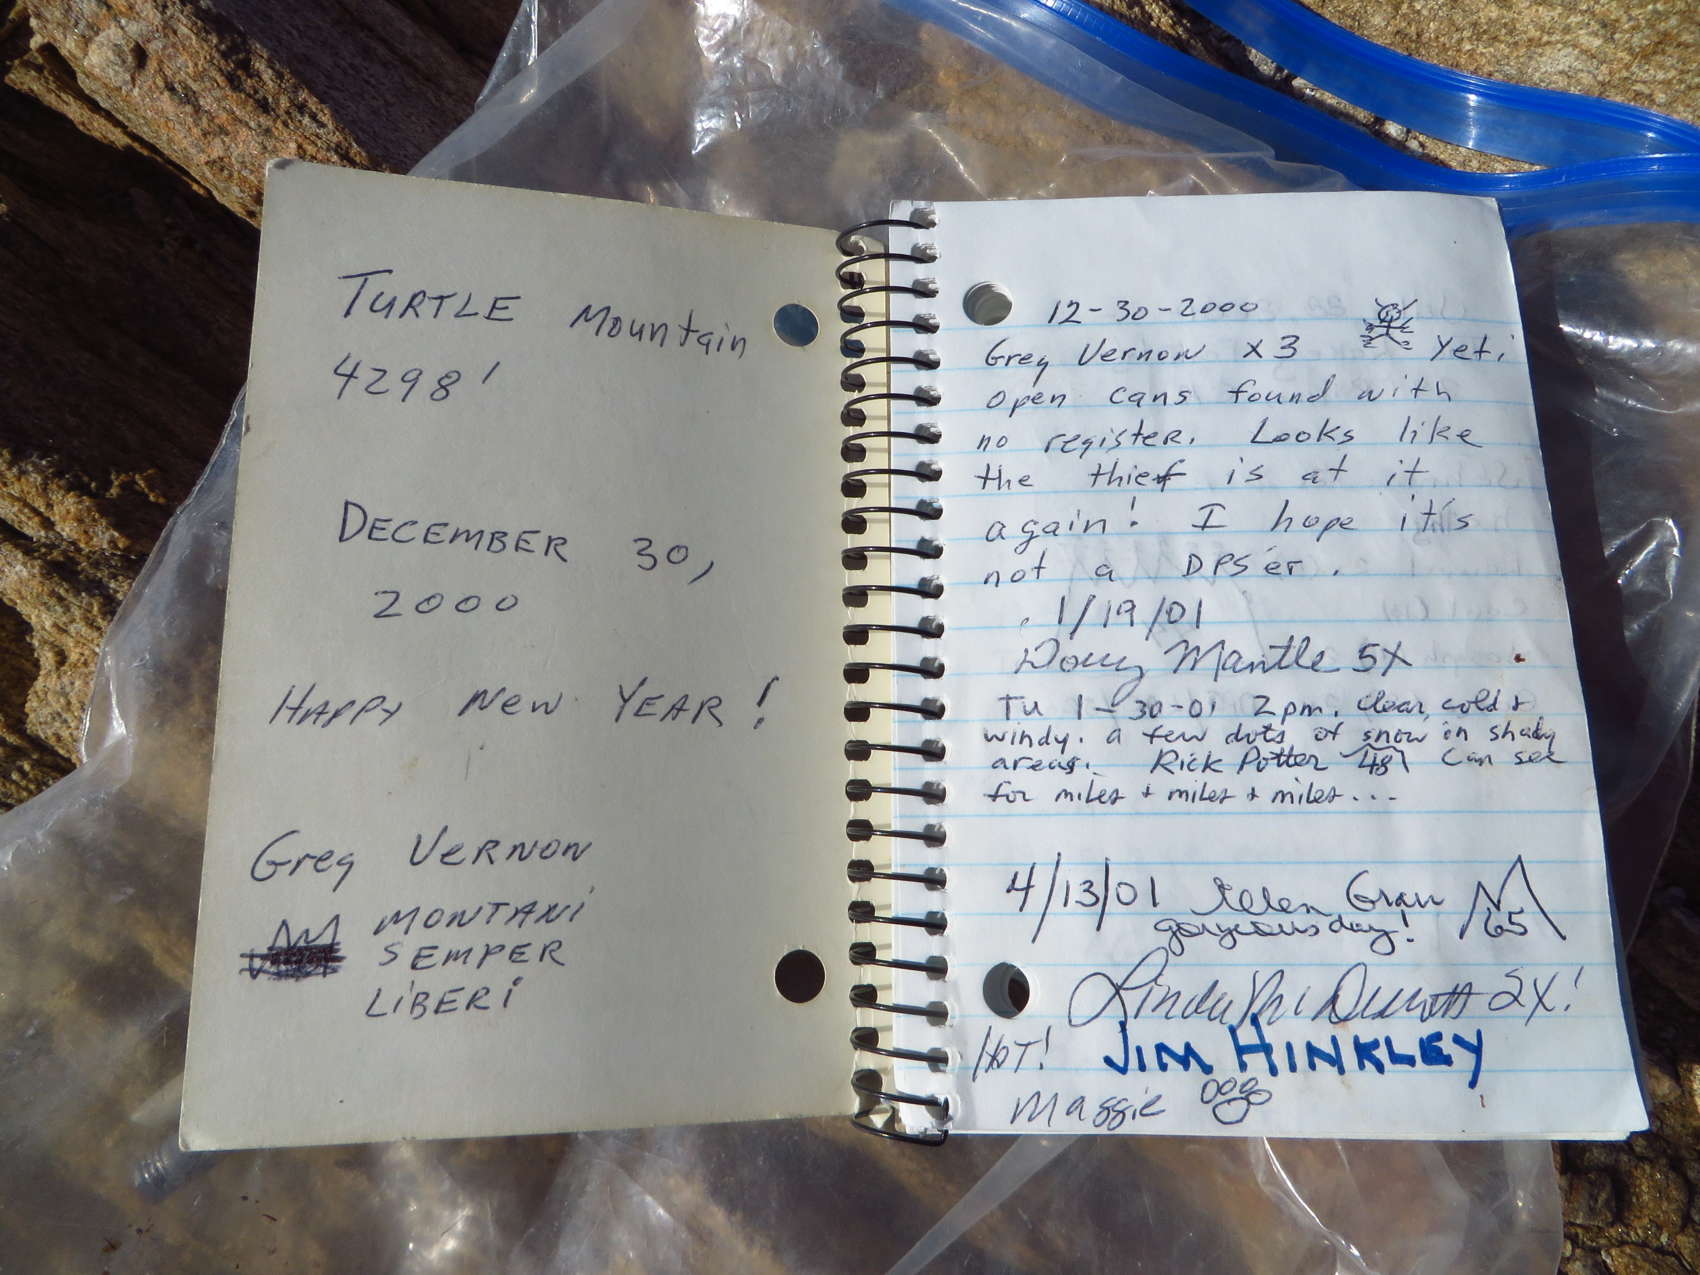 TURTLE Mountain
4298'
DECEMBER 30,
2000
HAPPY New YEAR!
Greg VERNON
MONTANI
SEMPER
LIBERI
12-30-2000
Greg Vernon x3 Yeti
open cans found with
no register. Looks like
the thief is at it
again! I hope it's
not a DPS'er.
1/19/01
Doug Mantle 5X
Tu 1-30-01 2pm. Clear, cold +
windy. a few dots of snow in shady
areas. Rick Potter 48 Can see
for miles + miles + miles...
4/13/01 Ellen Gran 65
gorgeous day!
Linda McDermott 2X!
HOT! JIM HINKLEY
Maggie